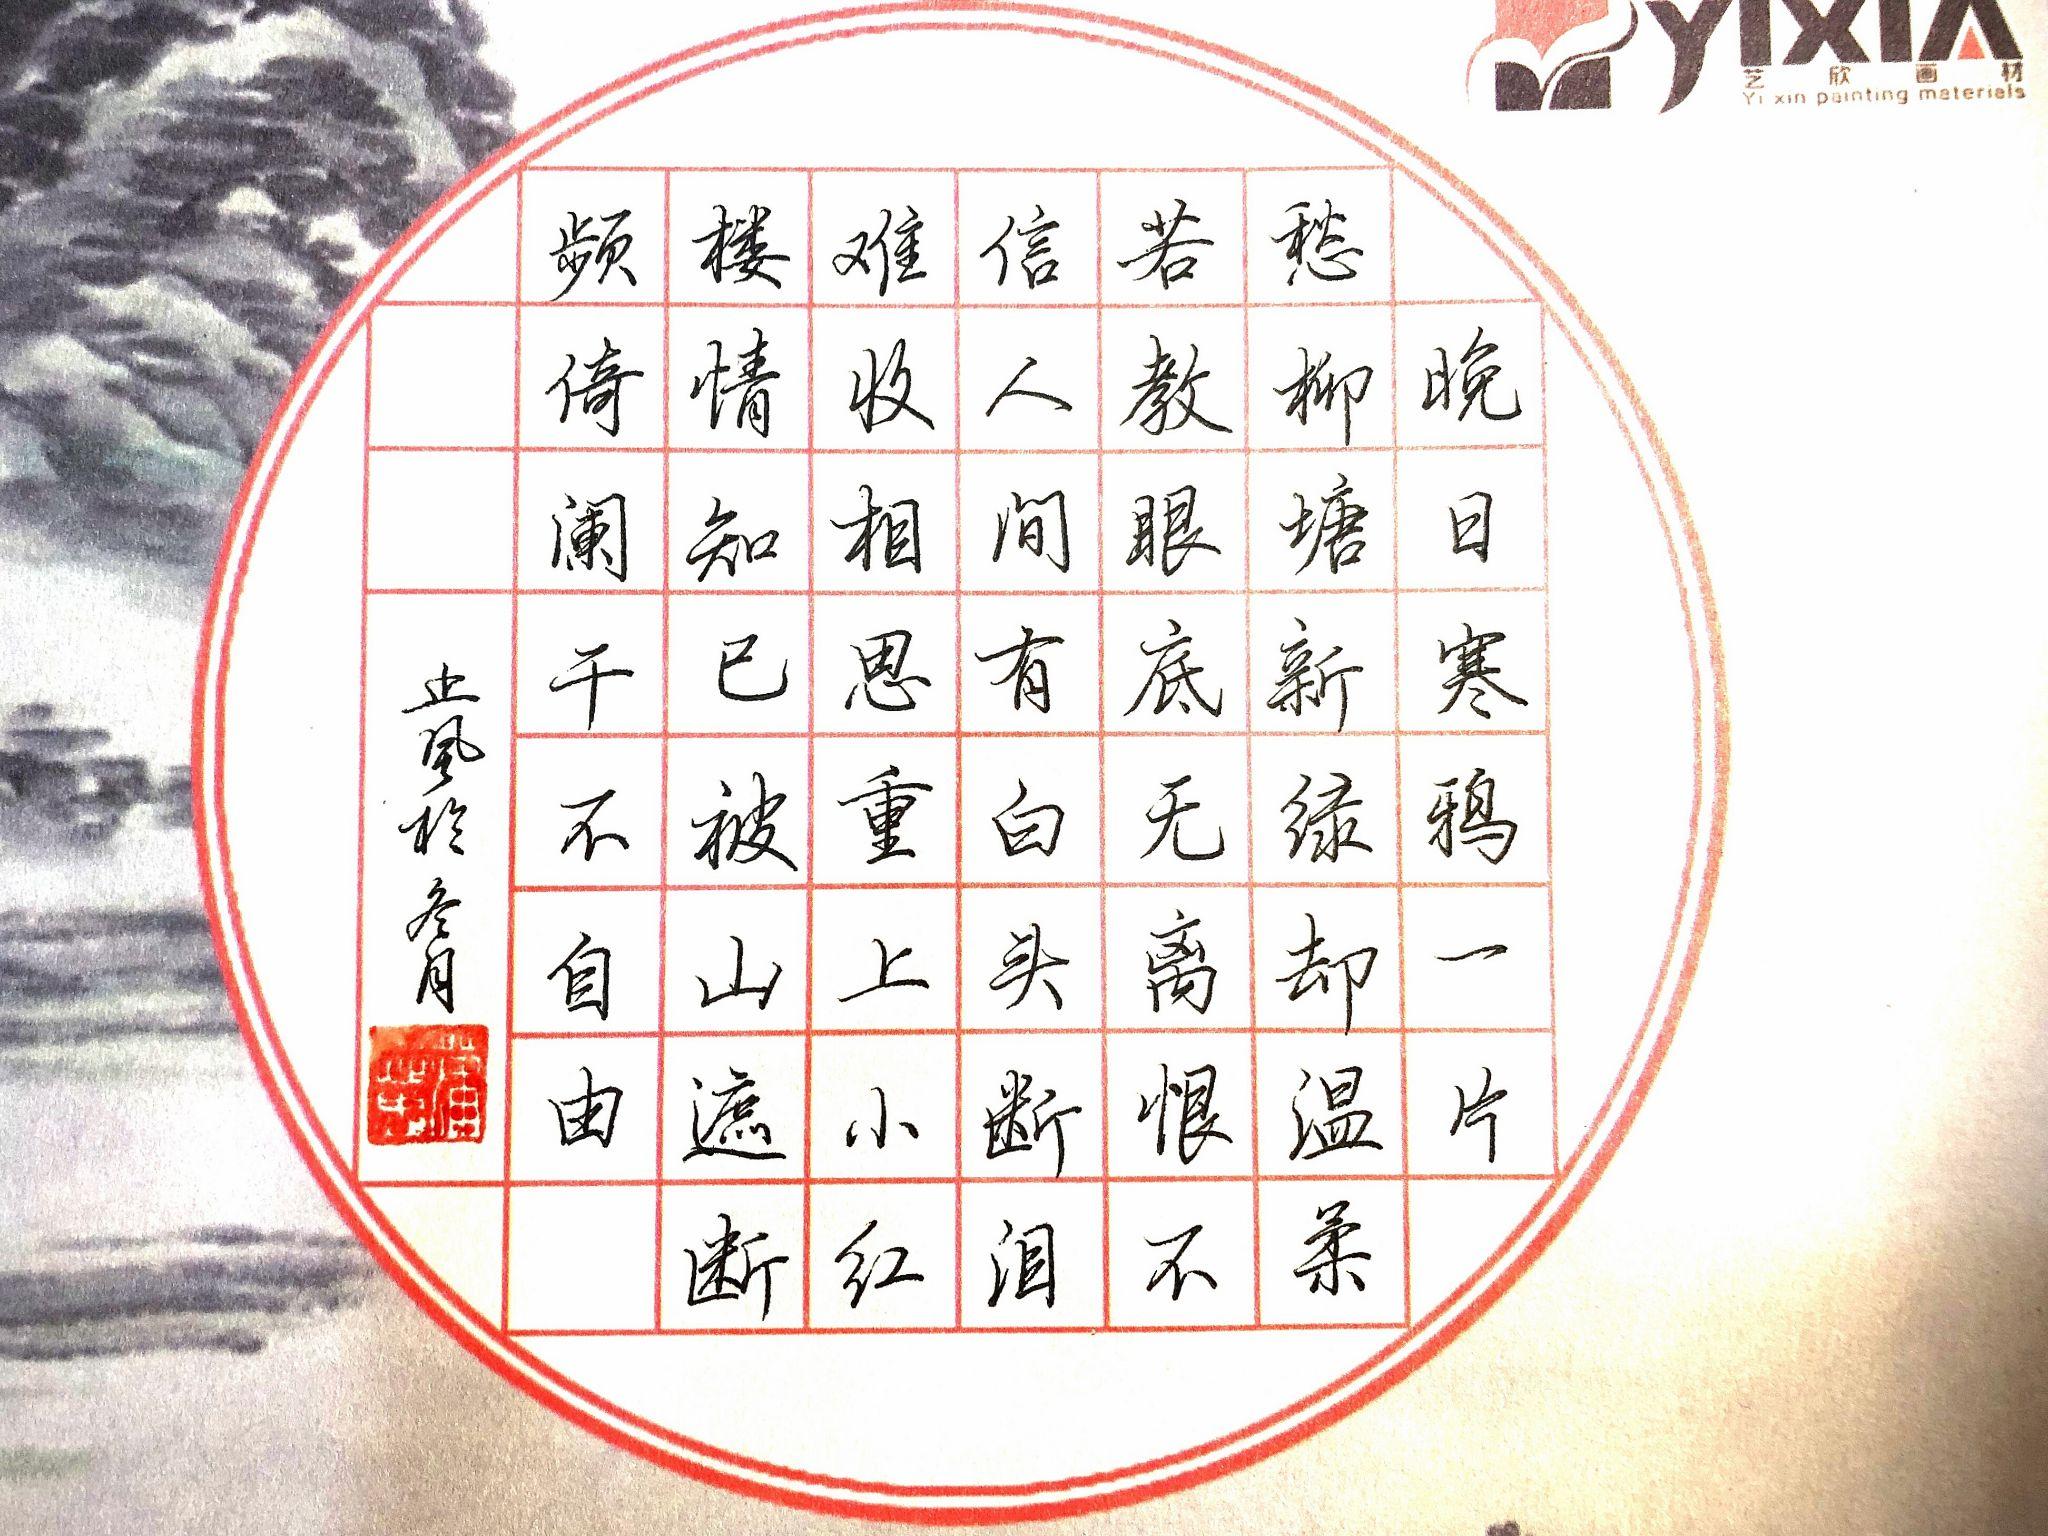 晚日寒鸦一片
愁柳塘新绿却温柔
若教眼底无离恨不
信人间有白头断泪
难收相思重上小红
楼情知已被山遮断
频倚阑干不自由
止风於冬月
YIXIA
艺欣画材
Yi xin painting materials